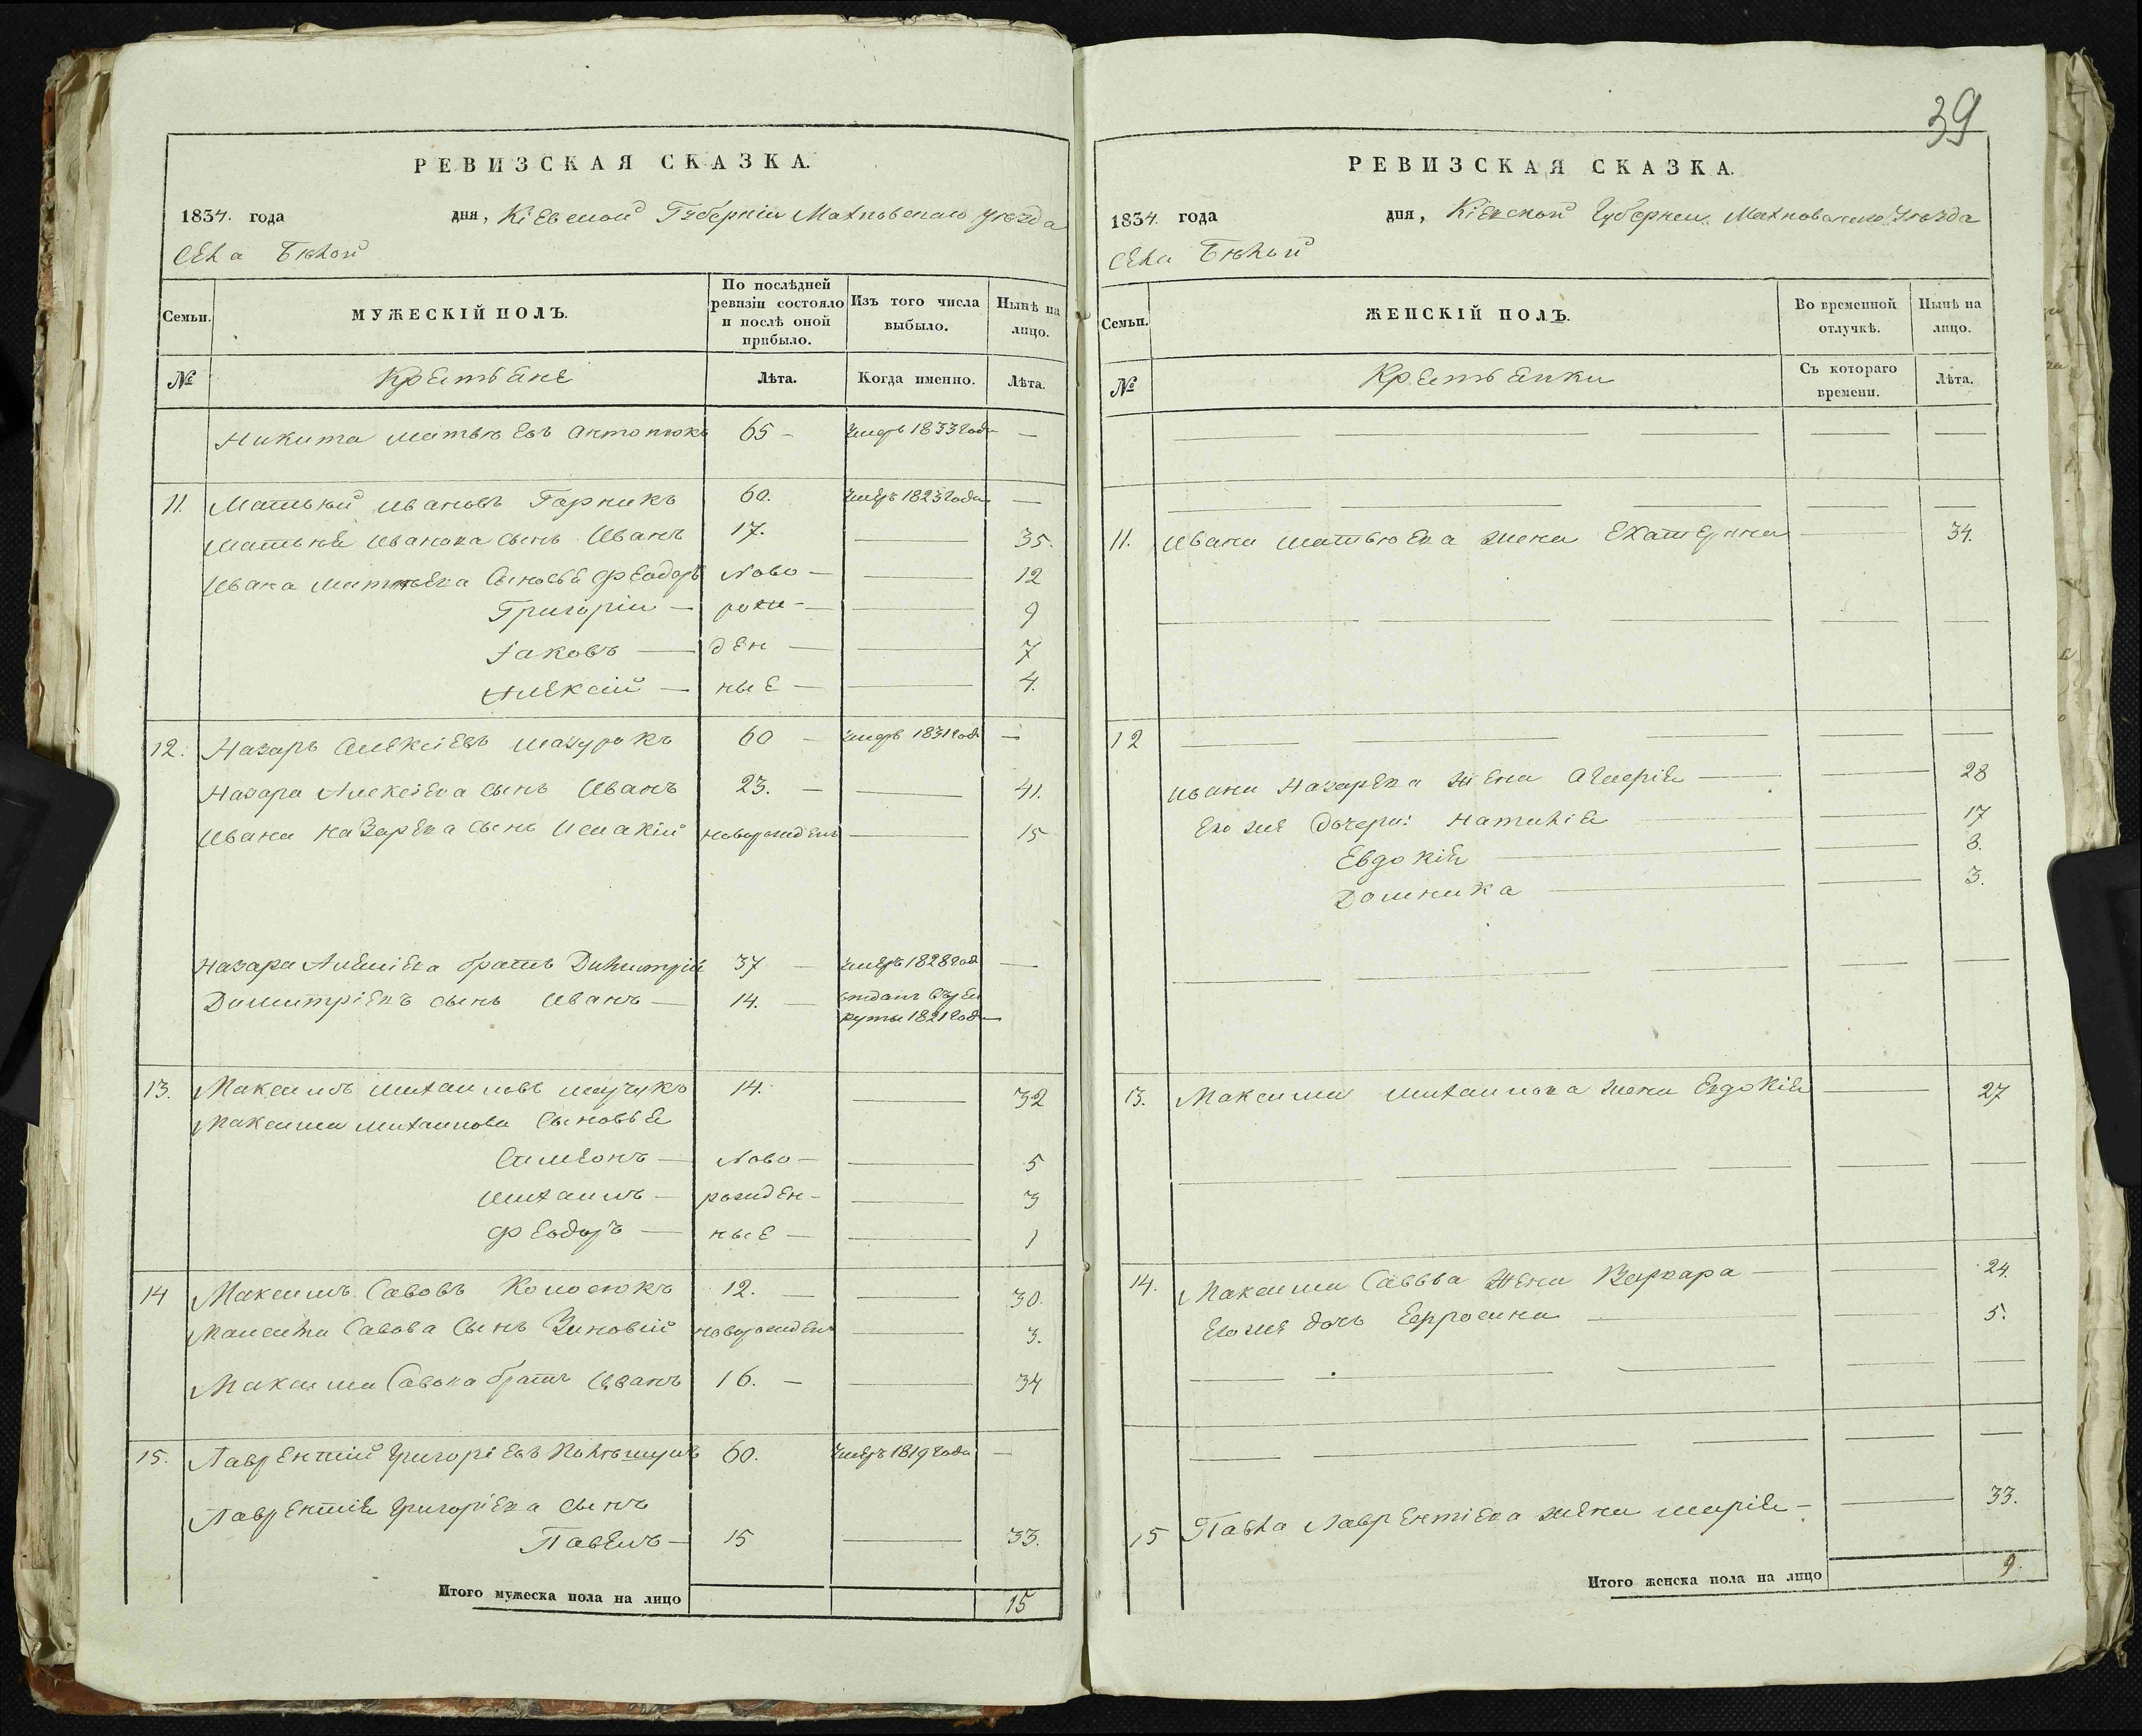 РЕВИЗСКАЯ СКАЗКА.
1834. года дня, Кіевской Губерніи Махновскаго Уезда
Села Белой
Семьи. МУЖЕСКІЙ ПОЛЪ. По послѣдней ревизіи состояло и послѣ оной прибыло. Изъ того числа выбыло. Нынѣ на лицо.
№ Крестьяне Лѣта. Когда именно. Лѣта.
Никита Матвеевъ Антонюкъ 65 — умеръ 1833 года —
11. Матвей Ивановъ Гарникъ 60. умеръ 1823 года —
Матвея Иванова сынъ Иванъ 17. — 35.
Ивана Матвеева сыновья Феодоръ ново — — 12
Григоріи — рож — — 9
Іаковъ — ден — — 7
Алексій — ные — — 4.
12. Назаръ Алексіевъ Мазурокъ 60 — умеръ 1831 год —
Назара Алексіева сынъ Иванъ 23. — — 41.
Ивана Назарева сынъ Исакій новорожден — 15
Назара Алексіева братъ Димитрій 37 — умеръ 1828 год —
Димитріевъ сынъ Иванъ — 14. — отданъ въ ре
круты 1821 год —
13. Максимъ Михаиловъ 14. — 32
Максима Михаилова сыновья
Симеонъ — ново — — 5
Михаилъ — рожден — — 3
Феодоръ — ные — — 1
14 Максимъ Савовъ Колосюкъ 12. — — 30.
Максима Савова сынъ Зиновій новорожден — 3.
Максима Савова братъ Иванъ 16. — — 34
15. Лаврентій Григоріевъ 60. умеръ 1819 года —
Лаврентія Григоріева сынъ
Павелъ — 15 — 33.
Итого мужеска пола на лицо 15
39
РЕВИЗСКАЯ СКАЗКА.
1834. года дня, Кіевской Губерніи Махновскаго Уезда
Села Белой
Семьи. ЖЕНСКІЙ ПОЛЪ. Во временной отлучкѣ. Нынѣ на лицо.
№ Крестьянки Съ котораго времени. Лѣта.
11. Ивана Матвеева жена Екатерина — 34.
12
Ивана Назарева жена — — 28
Его же дочери: Наталія — — 17
Евдокія — — 8.
Домника — — 3.
13. Максима Михаилова жена Евдокія — 27
14. Максима Саввва жена Варвара — — 24.
Его же дочь Ефросина — — 5.
15 Павла Лаврентіева жена Марія — — 33.
Итого женска пола на лицо 9.